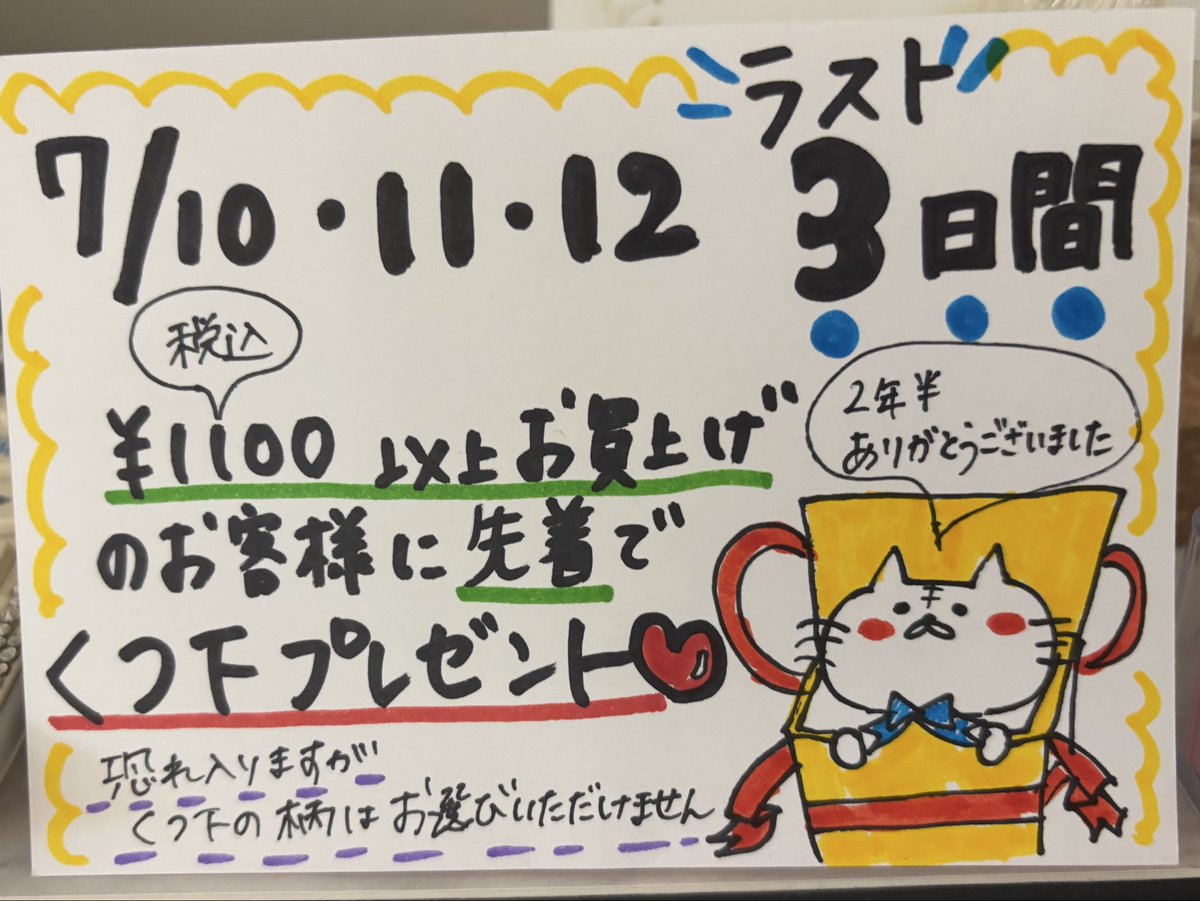 ラスト
7/10・11・12 3日間
税込
¥1100 以上お買上げ
のお客様に先着で
くつ下プレゼント
恐れ入りますが
くつ下の柄はお選びいただけません
2年半
ありがとうございました